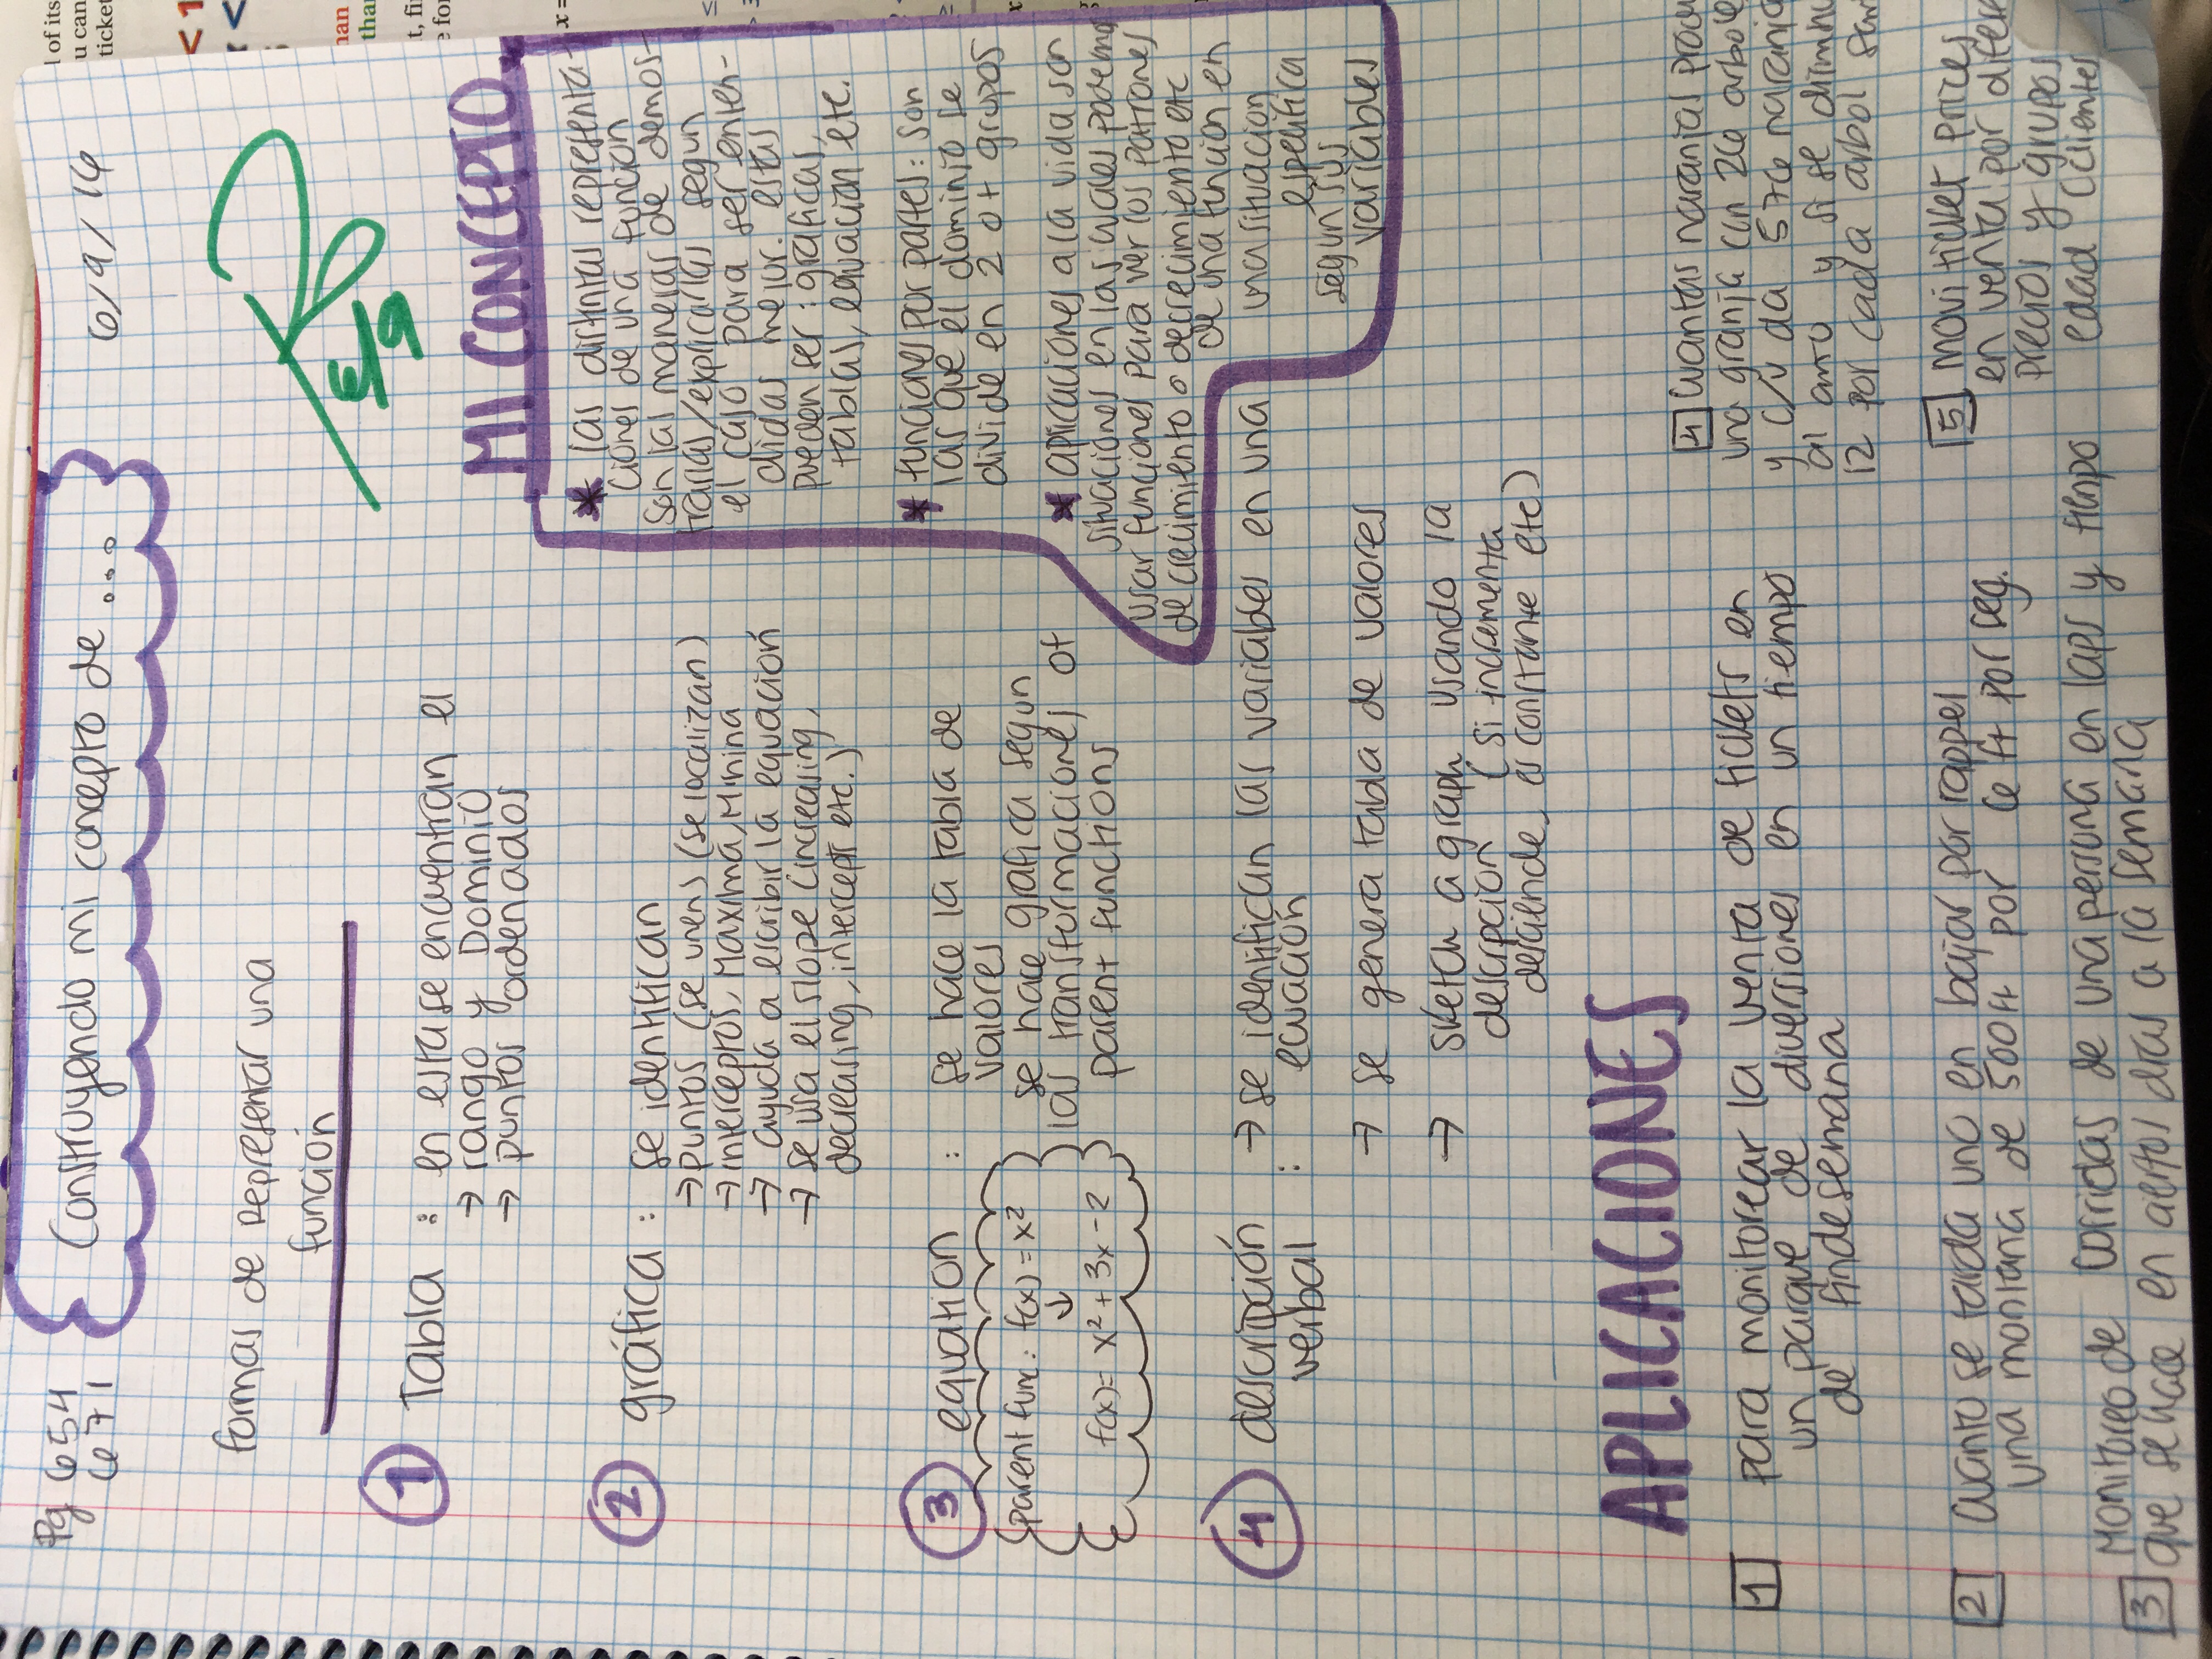 Pg 654
671
Construyendo mi concepto de ....
6/9/16
6/9
formas de representar una
función
1 Tabla : en esta se encuentran el
→ rango y Dominio
→ puntos ordenados
2 gráfica : se identifican
→ puntos (se unen) (se localizan)
→ interceptos, Maxima, Minina
→ ayuda a escribir la equación
→ se usa el slope (increasing,
decreasing, intercept etc.)
3 equation : se hace la tabla de
valores
parent func: f(x) = x²
↓
f(x) = x² + 3x - 2
se hace grafica segun
las transformaciones of
parent functions
4 descripción
verbal :
→ se identifican las variables en una
ecuación
→ se genera tabla de valores
→ sketch a graph usando la
descripción (si incrementa
desciende, es constante etc)
MI CONCEPTO
* las distintas representa-
ciones de una función
son las maneras de demos-
trarlas/explicarlas segun
el caso para ser enten-
didas mejor. estas
pueden ser: graficas,
tablas, equación etc.
* funciones por partes: son
las que el dominio se
divide en 2 o + grupos
* aplicaciones a la vida son
situaciones en las cuales podemos
usar funciones para ver los patrones
de crecimiento o decrecimiento etc
de una función en
una situacion
espesifica
segun sus
variables
APLICACIONES
1 para monitorear la venta de tickets en
un parque de diversiones en un tiempo
de fin de semana
2 cuanto se tarda uno en bajar por rappel
una montaña de 500ft por 6 ft por seg.
3 Monitoreo de corridas de una persona en laps y tiempo
que se hace en aertos dias a la semana
4 Cuantas naranjas
una granja con 26 arboles
y c/u da 576 naranjas
al año y si se
12 por cada arbol
5 movi ticket prices
en venta por
precios y grupos
edad clientes
l of its
u can
ticket
<1
<
than
x =